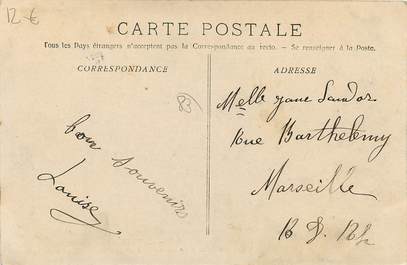 12 €
CARTE POSTALE
Tous les Pays étrangers n'acceptent pas la Correspondance au recto. — Se renseigner à la Poste.
CORRESPONDANCE
ADRESSE
83
bon souvenirs
Louise
Melle Jane Sandoz
Rue Barthelemy
Marseille
B. D. Rh